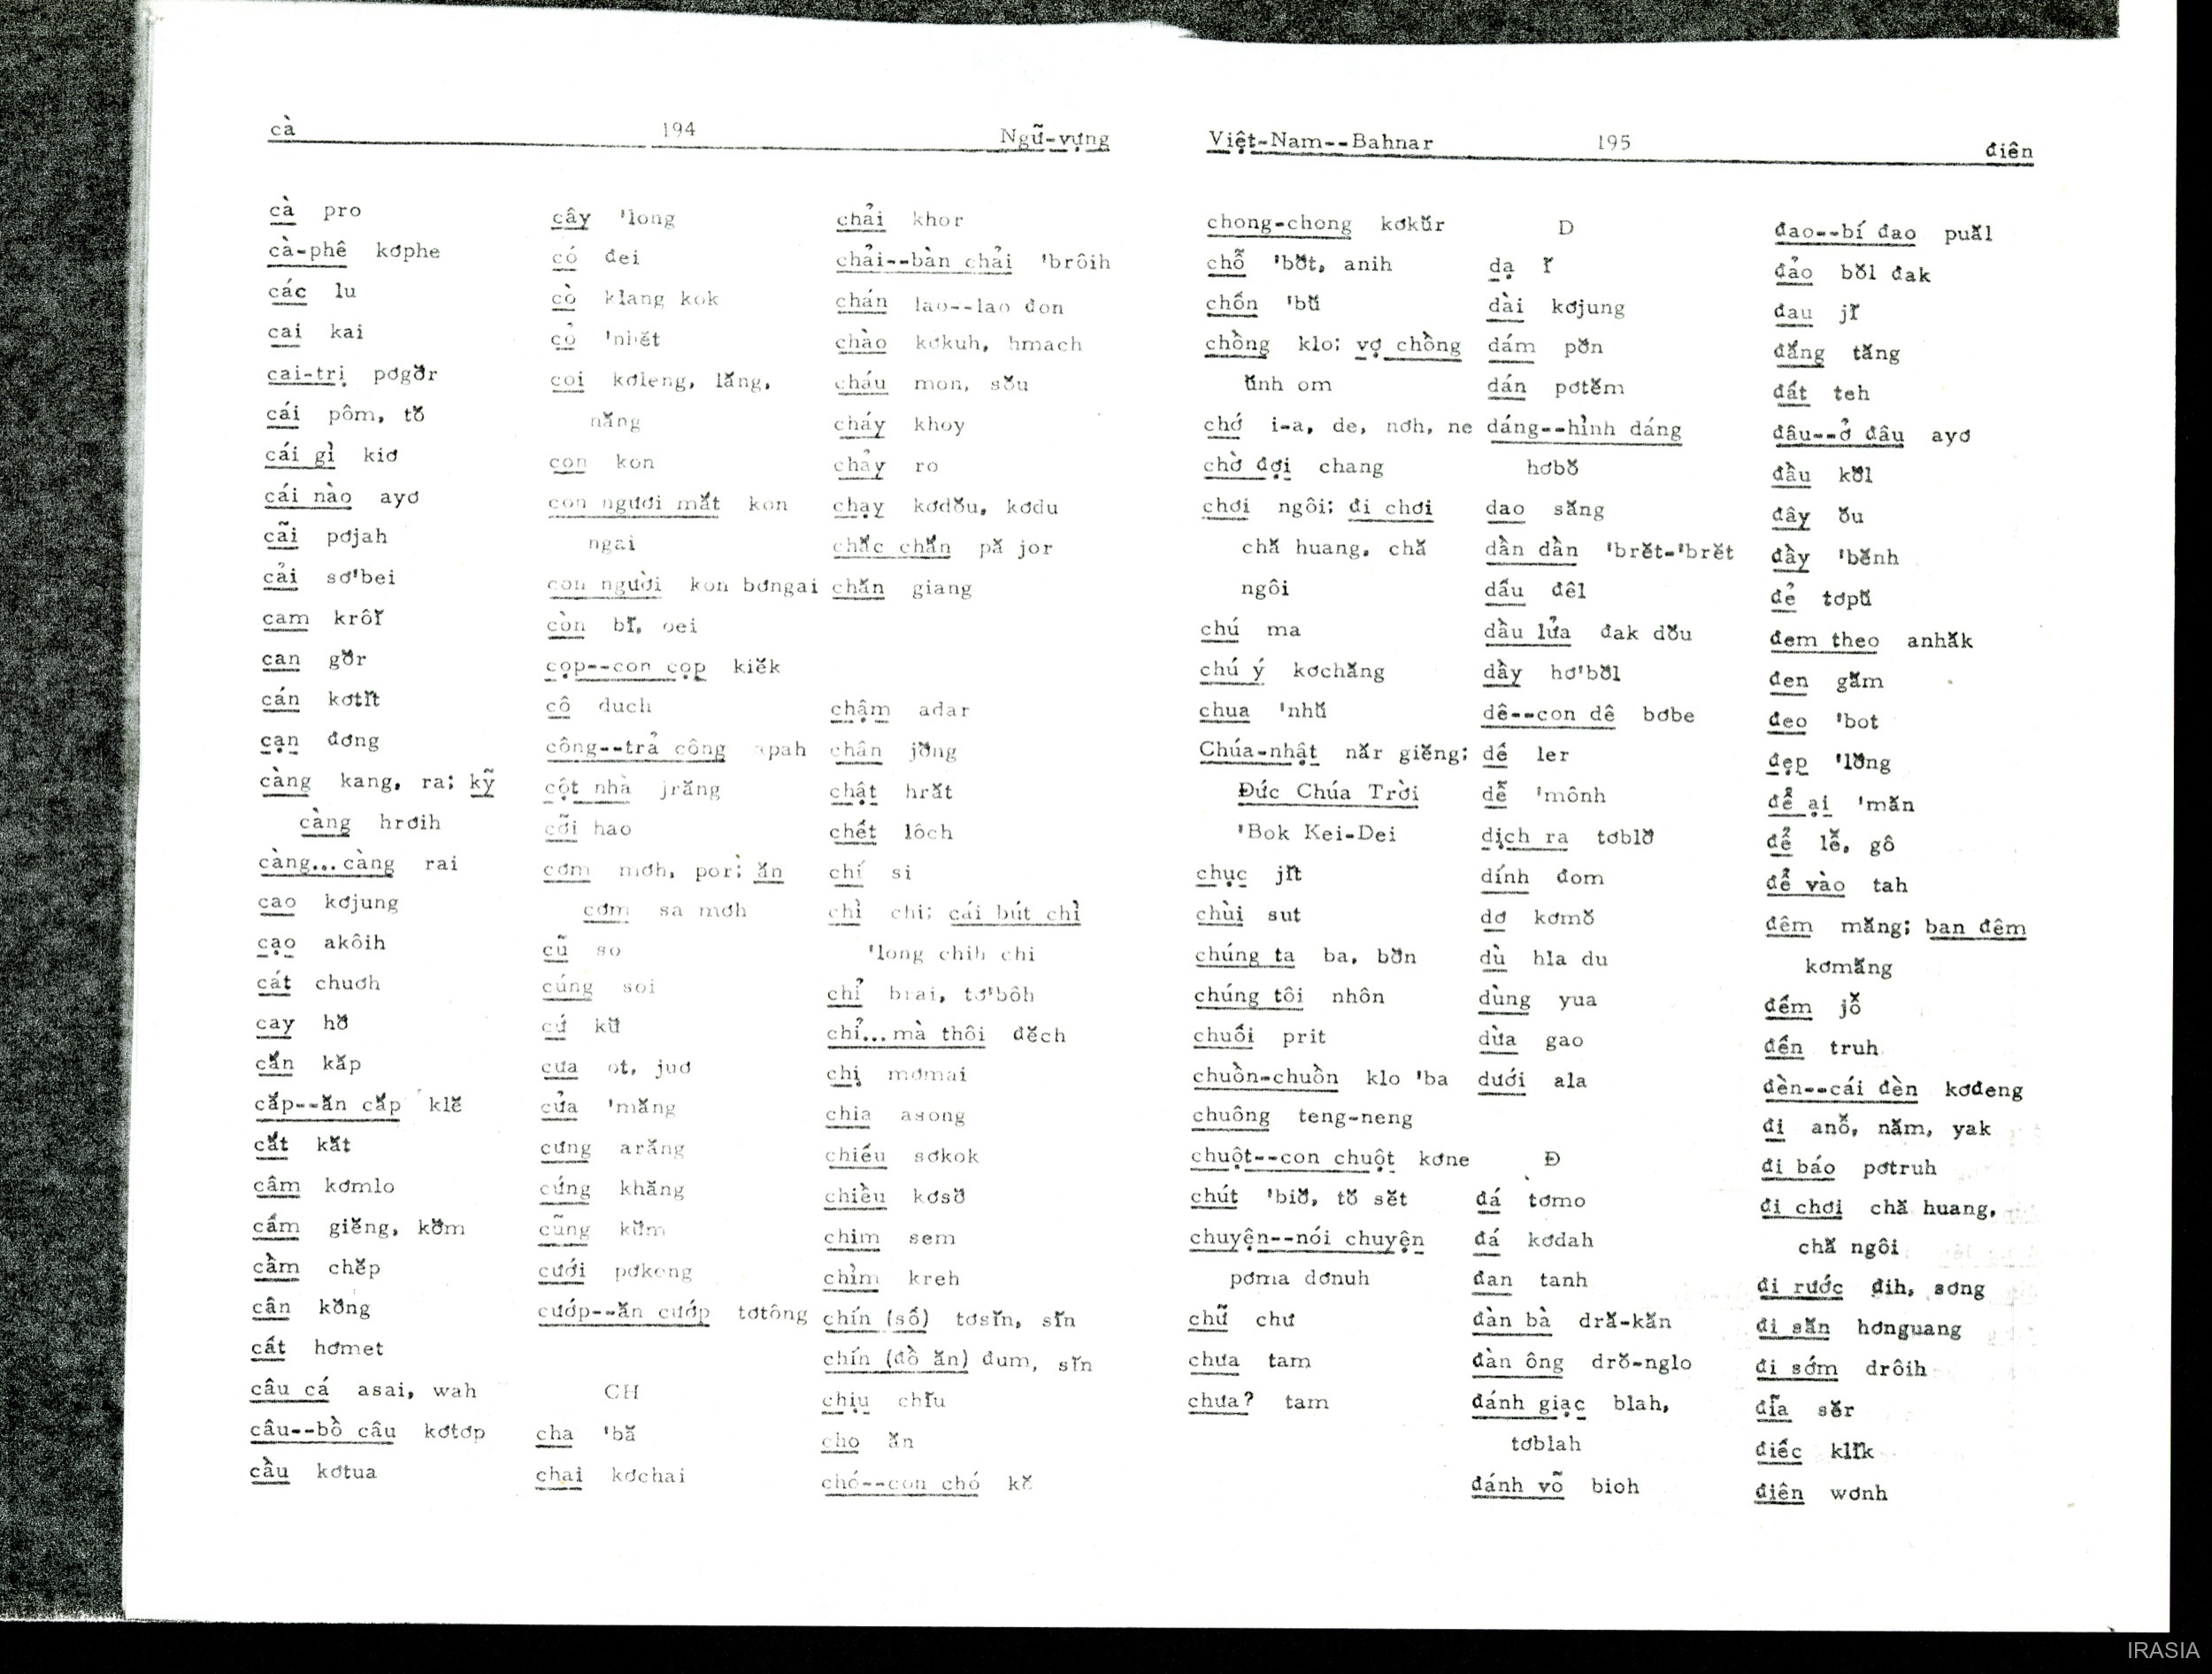 cà 194 Ngữ-vựng
cà pro
cà-phê kơphe
các lu
cai kai
cai-trị pơgơ̆r
cái pôm, tŏ
cái gì kiơ
cái nào ayơ
cãi pơjah
cải sơ'bei
cam krôĭ
can gơ̆r
cán kơtĭt
cạn đơng
càng kang, ra; kỹ
càng hrơih
càng...càng rai
cao kơjung
cạo akôih
cát chuơh
cay hơ̆
cắn kăp
cắp--ăn cắp klĕ
cắt kăt
câm kơmlo
cấm giĕng, kơ̆m
cầm chĕp
cân kơ̆ng
cất hơmet
câu cá asai, wah
câu--bồ câu kơtơp
cầu kơtua
cây 'long
có đei
cò klang kok
cỏ 'nhĕt
coi kơleng, lăng,
năng
con kon
con ngươi mắt kon
ngai
con người kon bơngai
còn bĭ, oei
cọp--con cọp kiĕk
cô duch
công--trả công apah
cột nhà jrăng
cỡi hao
cơm mơh, por; ăn
cơm sa mơh
cũ so
cúng soi
cứ kŭ
cưa ot, juơ
cửa 'măng
cưng arăng
cứng khăng
cũng kŭm
cưới pơkong
cướp--ăn cướp tơtông
CH
cha 'bă
chai kơchai
chải khor
chải--bàn chải 'brôih
chán lao--lao đon
chào kơkuh, hmach
cháu mon, sŏu
cháy khoy
chảy ro
chạy kơdŏu, kơdu
chắc chắn pă jor
chăn giang
chậm adar
chân jơ̆ng
chật hrăt
chết lôch
chí si
chì chi; cái bút chì
'long chih chi
chỉ brai, tơ'bôh
chỉ...mà thôi dĕch
chị mơmai
chia asong
chiếu sơkok
chiều kơsơ̆
chim sem
chìm kreh
chín (số) tơsĭn, sĭn
chín (đồ ăn) dum, sĭn
chịu chĭu
cho ăn
chó--con chó kŏ
Việt-Nam--Bahnar 195 điên
chong-chong kơkŭr
chỗ 'bơ̆t, anih
chốn 'bŭ
chồng klo; vợ chồng
ŭnh om
chớ i-a, de, nơh, ne
chờ đợi chang
chơi ngôi; đi chơi
chă huang, chă
ngôi
chú ma
chú ý kơchăng
chua 'nhŭ
Chúa-nhật năr giĕng;
Đức Chúa Trời
'Bok Kei-Dei
chục jĭt
chùi sut
chúng ta ba, bơ̆n
chúng tôi nhôn
chuối prit
chuồn-chuồn klo 'ba
chuông teng-neng
chuột--con chuột kơne
chút 'biơ̆, tŏ sĕt
chuyện--nói chuyện
pơma dơnuh
chữ chư
chưa tam
chưa? tam
D
dạ ĭ
dài kơjung
dám pơ̆n
dán pơtĕm
dáng--hình dáng
hơbŏ
dao săng
dần dần 'brĕt-'brĕt
dấu đêl
dầu lửa đak dŏu
dầy hơ'bơ̆l
dê--con dê bơbe
dế ler
dễ 'mônh
dịch ra tơblơ̆
dính đom
dơ kơmŏ
dù hla du
dùng yua
dừa gao
dưới ala
Đ
đá tơmo
đá kơdah
đan tanh
đàn bà dră-kăn
đàn ông drŏ-nglo
đánh giạc blah,
tơblah
đánh vỗ bioh
đao--bí đao puăl
đảo bŏl đak
đau jĭ
đắng tăng
đất teh
đâu--ở đâu ayơ
đầu kơ̆l
đây ŏu
đầy 'bĕnh
đẻ tơpŭ
đem theo anhăk
đen găm
đeo 'bot
đẹp 'lơ̆ng
để ại 'măn
để lĕ, gô
để vào tah
đêm măng; ban đêm
kơmăng
đếm jô̆
đến truh
đèn--cái đèn kơđeng
đi anô̆, năm, yak
đi báo pơtruh
đi chơi chă huang,
chă ngôi
đi rước đih, sơng
đi săn hơnguang
đi sớm drôih
đĩa sĕr
điếc klĭk
điên wơnh
IRASIA